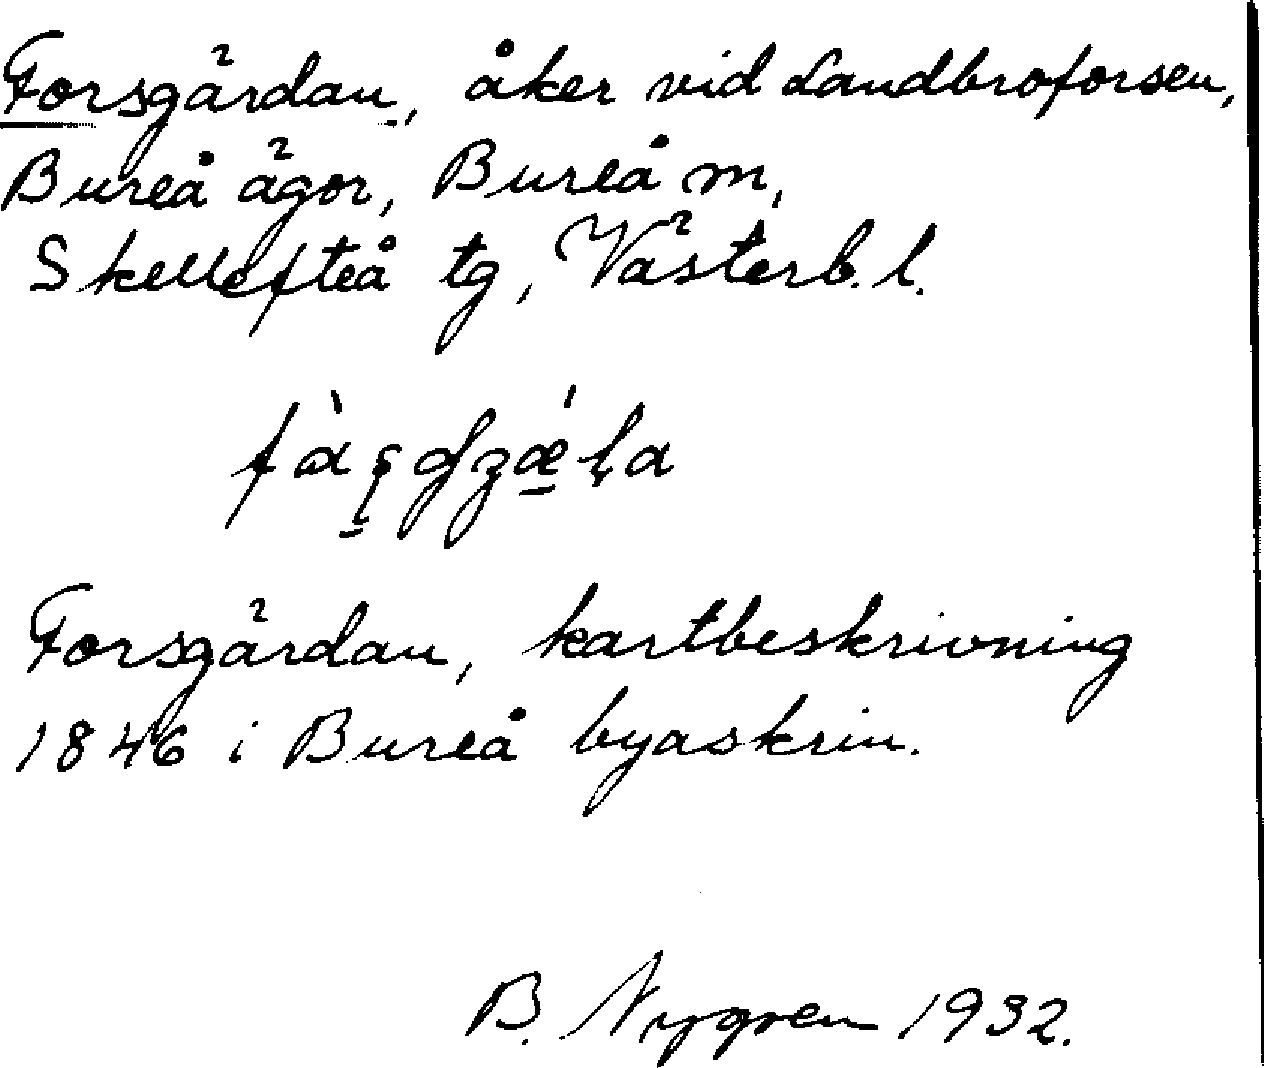 Forsgärdan, åker vid Landbroforsen,
Bureå ägor, Bureå m,
Skellefteå tg, Västerb. l.
Forsgärdan, kartbeskrivning
1846 i Bureå byaskrin.
B. Nygren 1932.